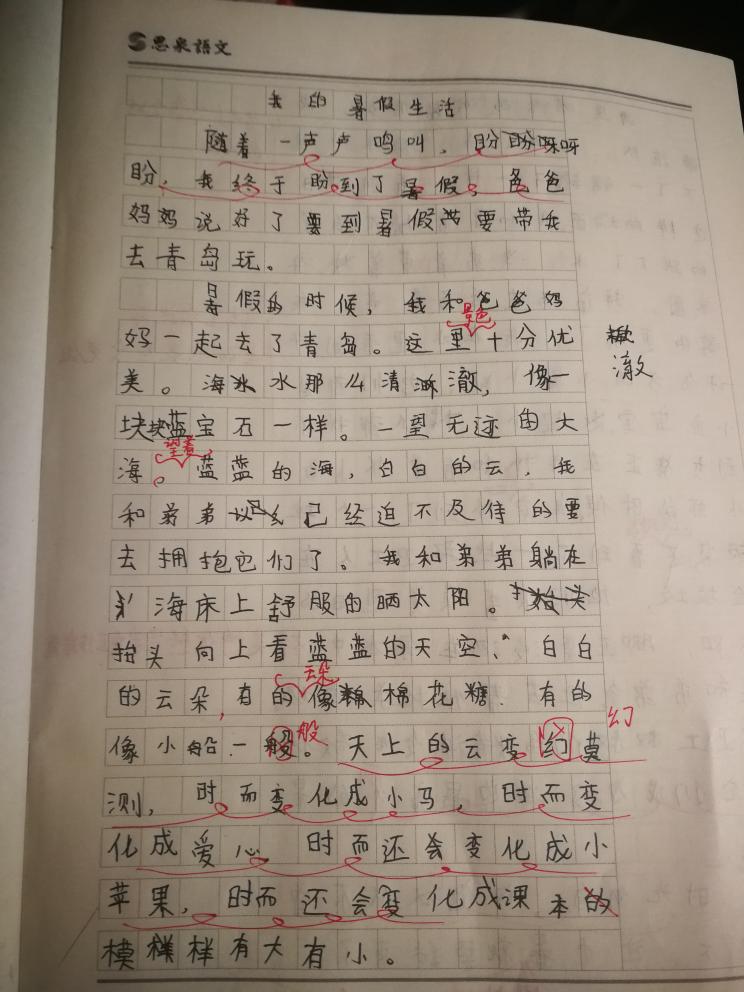 思泉語文
我的暑假生活
随着一声声鸣叫，盼盼呀呀
盼，我终于盼到了暑假，爸爸
妈妈说好了要到暑假要带我
去青岛玩。
暑假的时候，我和爸爸妈
景色
妈一起去了青岛。这里十分优
美。海水那么清澈，像一
澈
块块蓝宝石一样。一望无迹的大
望着
海。蓝蓝的海，白白的云，我
和弟弟已经迫不及待的要
去拥抱它们了。我和弟弟躺在
海床上舒服的晒太阳。
抬头向上看蓝蓝的天空、白白
云朵
的云朵，有的像棉花糖．有的
像小船一般。天上的云变幻莫
般
幻
测，时而变化成小马，时而变
化成爱心，时而还会变化成小
苹果，时而还会变化成课本的
模样有大有小。